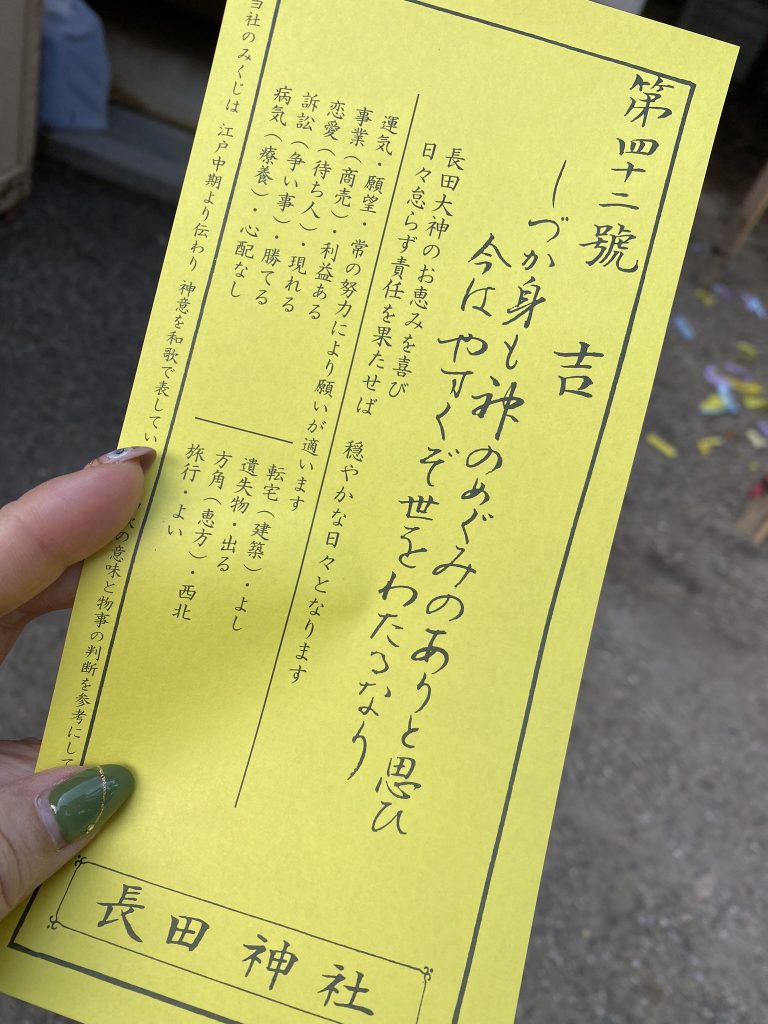 第四十二號　吉
しづか身も神のめぐみのありと思ひ
今はやすくぞ世をわたるなり
長田大神のお恵みを喜び
日々怠らず責任を果たせば　穏やかな日々となります
運気・願望・常の努力により願いが適います
事業（商売）・利益ある
恋愛（待ち人）・現れる
訴訟（争い事）・勝てる
病気（療養）・心配なし
転宅（建築）・よし
遺失物・出る
方角（恵方）・西北
旅行・よい
当社のみくじは　江戸中期より伝わり　神意を和歌で表してい
の意味と物事の判断を参考にして
長田神社